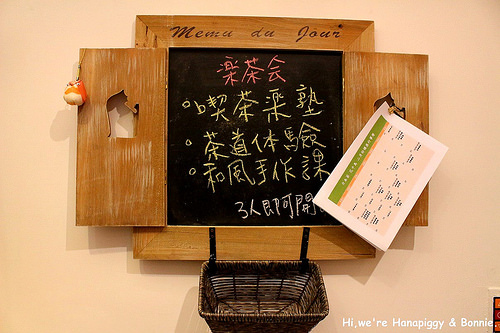 Menu du Jour
楽茶会
喫茶楽塾
茶道体驗
和風手作課
3人即可開
Hi,we're Hanapiggy & Bonnie.